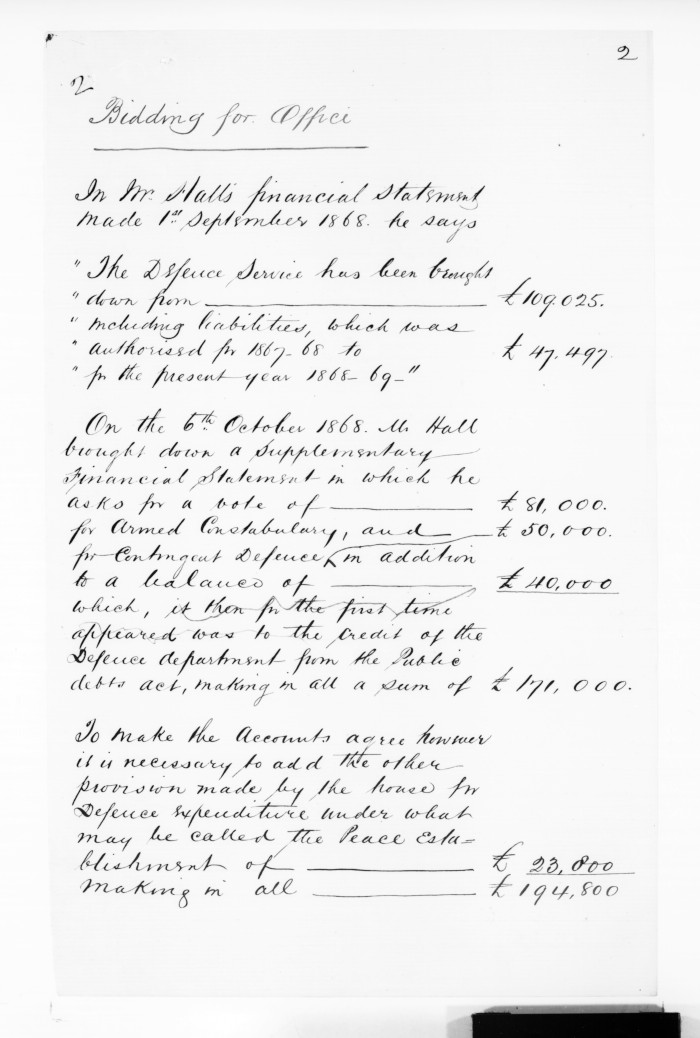 2
2
Bidding for Office
In Mr. Hall's financial Statement
made 1st September 1868. he says
" The Defence Service has been brought
" down from £109.025.
" including liabilities, which was
" authorised for 1867-68 to £47,497
" for the present year 1868-69-"
On the 6th October 1868. Mr Hall
brought down a Supplementary
Financial Statement in which he
asks for a vote of £81,000.
for Armed Constabulary, and £50,000.
for Contingent Defence, in addition
to a balance of £40,000
which, it then for the first time
appeared was to the credit of the
Defence department from the Public
debts act, making in all a sum of £171,000.
To make the Accounts agree however
it is necessary to add the other
provision made by the house for
Defence expenditure under what
may be called the Peace Esta=
blishment of £23,800
making in all £194,800